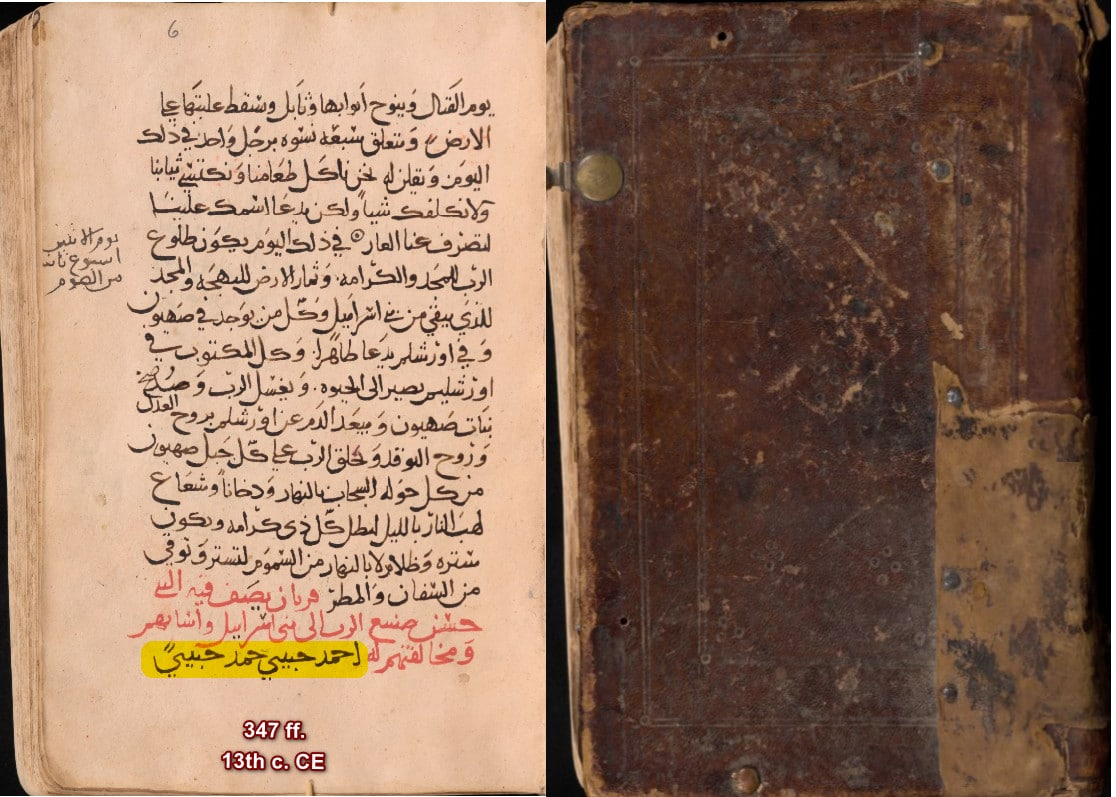 6
يوم القتال وينوح ابوابها وتسقط عليتها على
الارض وتتعلق سبعه نسوه برجل واحد في ذلك
اليوم وتقلن له نحن ناكل طعامنا ونكتسي ثيابنا
ولا نكلفك شياً ولكن يدعا اسمك علينا
لتصرف عنا العار في ذلك اليوم يكون طلوع
الرب للمجد والكرامه وثمار الارض للبهجه والمجد
للذي يبقي من بني اسراييل وكل من يوجد في صهيون
وفي اورشلم يدعا طاهرا وكل المكتوب في
اورشليم يصير الى الحيوه ويغسل الرب
بنات صهيون ويبعد الدم عن اورشلم بروح العدل
وروح التوقد ويخلق الرب على كل جبل صهيون
من كل حوله السحاب بالنهار ودخاناً وشعاع
لهب النار بالليل ليظل كل ذي كرامه وتكون
ستره وظلا بالنهار من السموم لتستر وتوقي
من والمطر يصف فيه النبي
حسن صنيع الرب الى بني اسراييل
ومخالفتهم له احمد حبيبي حمد حبيبي
يوم الاثنين
اسبوع ثاني
من الصوم
347 ff.
13th c. CE